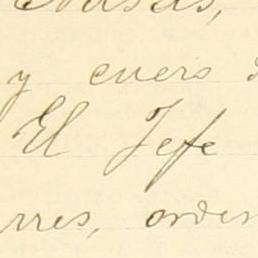 y cuero
El Jefe
rres, orden